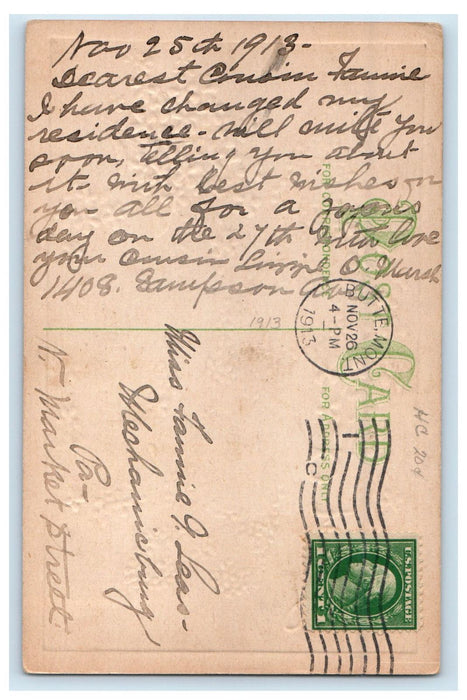 Nov 25th 1913-
Dearest Cousin Fannie
I have changed my
residence- will write you
soon, telling you about
it. with best wishes
you all for a joyous
day on the 27th with love
your Cousin Lizzie O. Marsh
1408. Sampson
POST CARD
FOR ADDRESS ONLY
BUTTE, MONT
B NOV 26
4-PM
1913
1913
HC 204
Miss Fannie J. Leas-
Mechanicsburg
Pa-
N. Market Street
U.S. POSTAGE
1 CENT 1